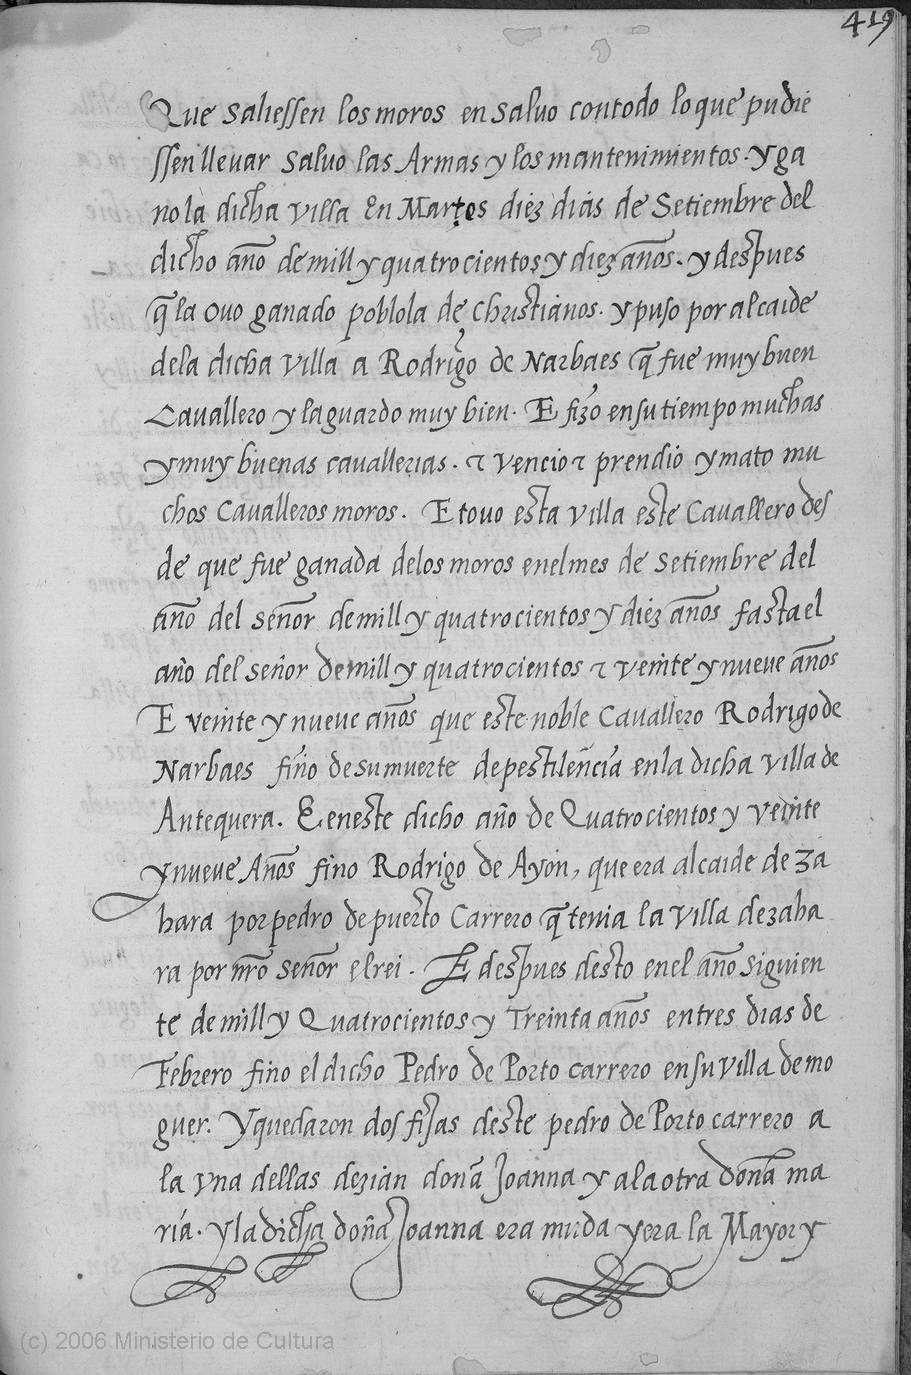 419
Que saliessen los moros en saluo con todo lo que pudie
ssen lleuar saluo las Armas y los mantenimientos. y ga
no la dicha villa En Martes diez dias de Setiembre del
dicho año de mill y quatrocientos y diez años. y despues
q̃ la ouo ganado poblola de Christianos. y puso por alcaide
dela dicha villa a Rodrigo de Narbaes q̃ fue muy buen
Cauallero y la guardo muy bien. E fizo en su tiempo muchas
y muy buenas cauallerias. ⁊ vencio ⁊ prendio y mato mu
chos Caualleros moros. E touo esta villa este Cauallero des
de que fue ganada delos moros en el mes de Setiembre del
año del señor de mill y quatrocientos y diez años fasta el
año del señor de mill y quatrocientos ⁊ veinte y nueue años
E veinte y nueue años que este noble Cauallero Rodrigo de
Narbaes fiño de su muerte de pestilençia en la dicha villa de
Antequera. E en este dicho año de Quatrocientos y Veinte
y nueue Años fino Rodrigo de Ayon, que era alcaide de Za
hara por pedro de puerto Carrero q̃ tenia la villa de zaha
ra por nr̃o señor el rei. E despues desto en el año siguien
te de mill y Quatrocientos y Treinta años en tres dias de
Febrero fino el dicho Pedro de Porto carrero en su villa de mo
guer. Y quedaron dos fijas deste pedro de Porto carrero a
la vna dellas dezian dona Joanna y a la otra doña ma
ría. y la dicha doña Joanna era muda y era la Mayor y
(c) 2006 Ministerio de Cultura